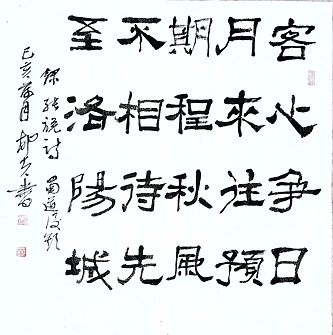 客心争日
月來往預
期程秋風
不相待先
至洛陽城
錄張說詩 蜀道後期
己亥 月 書